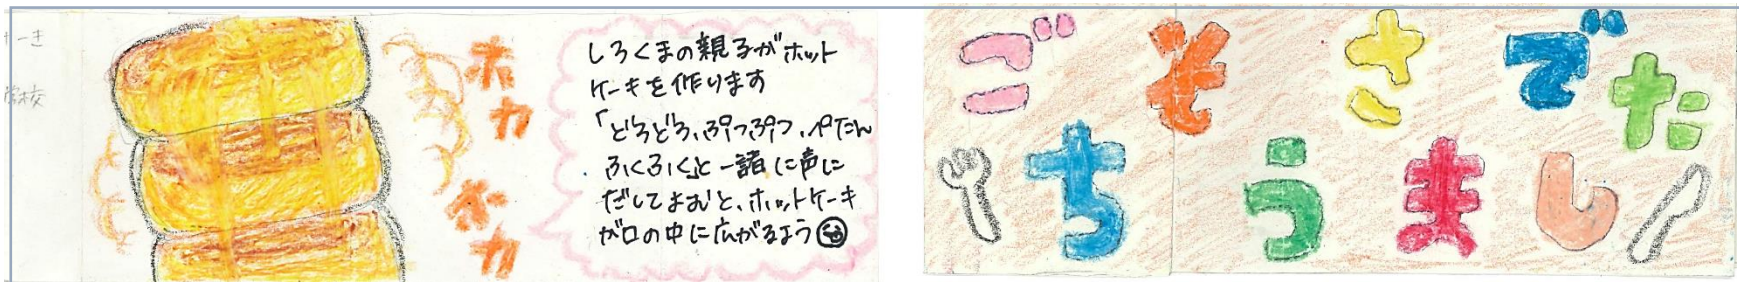 ーキ
学校
ホカ
ホカ
しろくまの親子がホット
ケーキを作ります
「どろどろ、ぷつぷつ、ぺたん
ふくふく」と一諸に声に
だしてよむと、ホットケーキ
が口の中に広がるよう
ごちそうさまでした